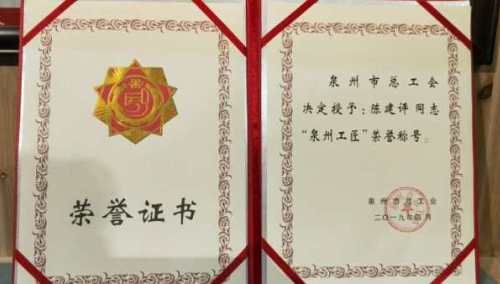 荣誉证书
泉州市总工会
决定授予：陈建评同志
“泉州工匠”荣誉称号。
泉州市总工会
二〇一九年四月